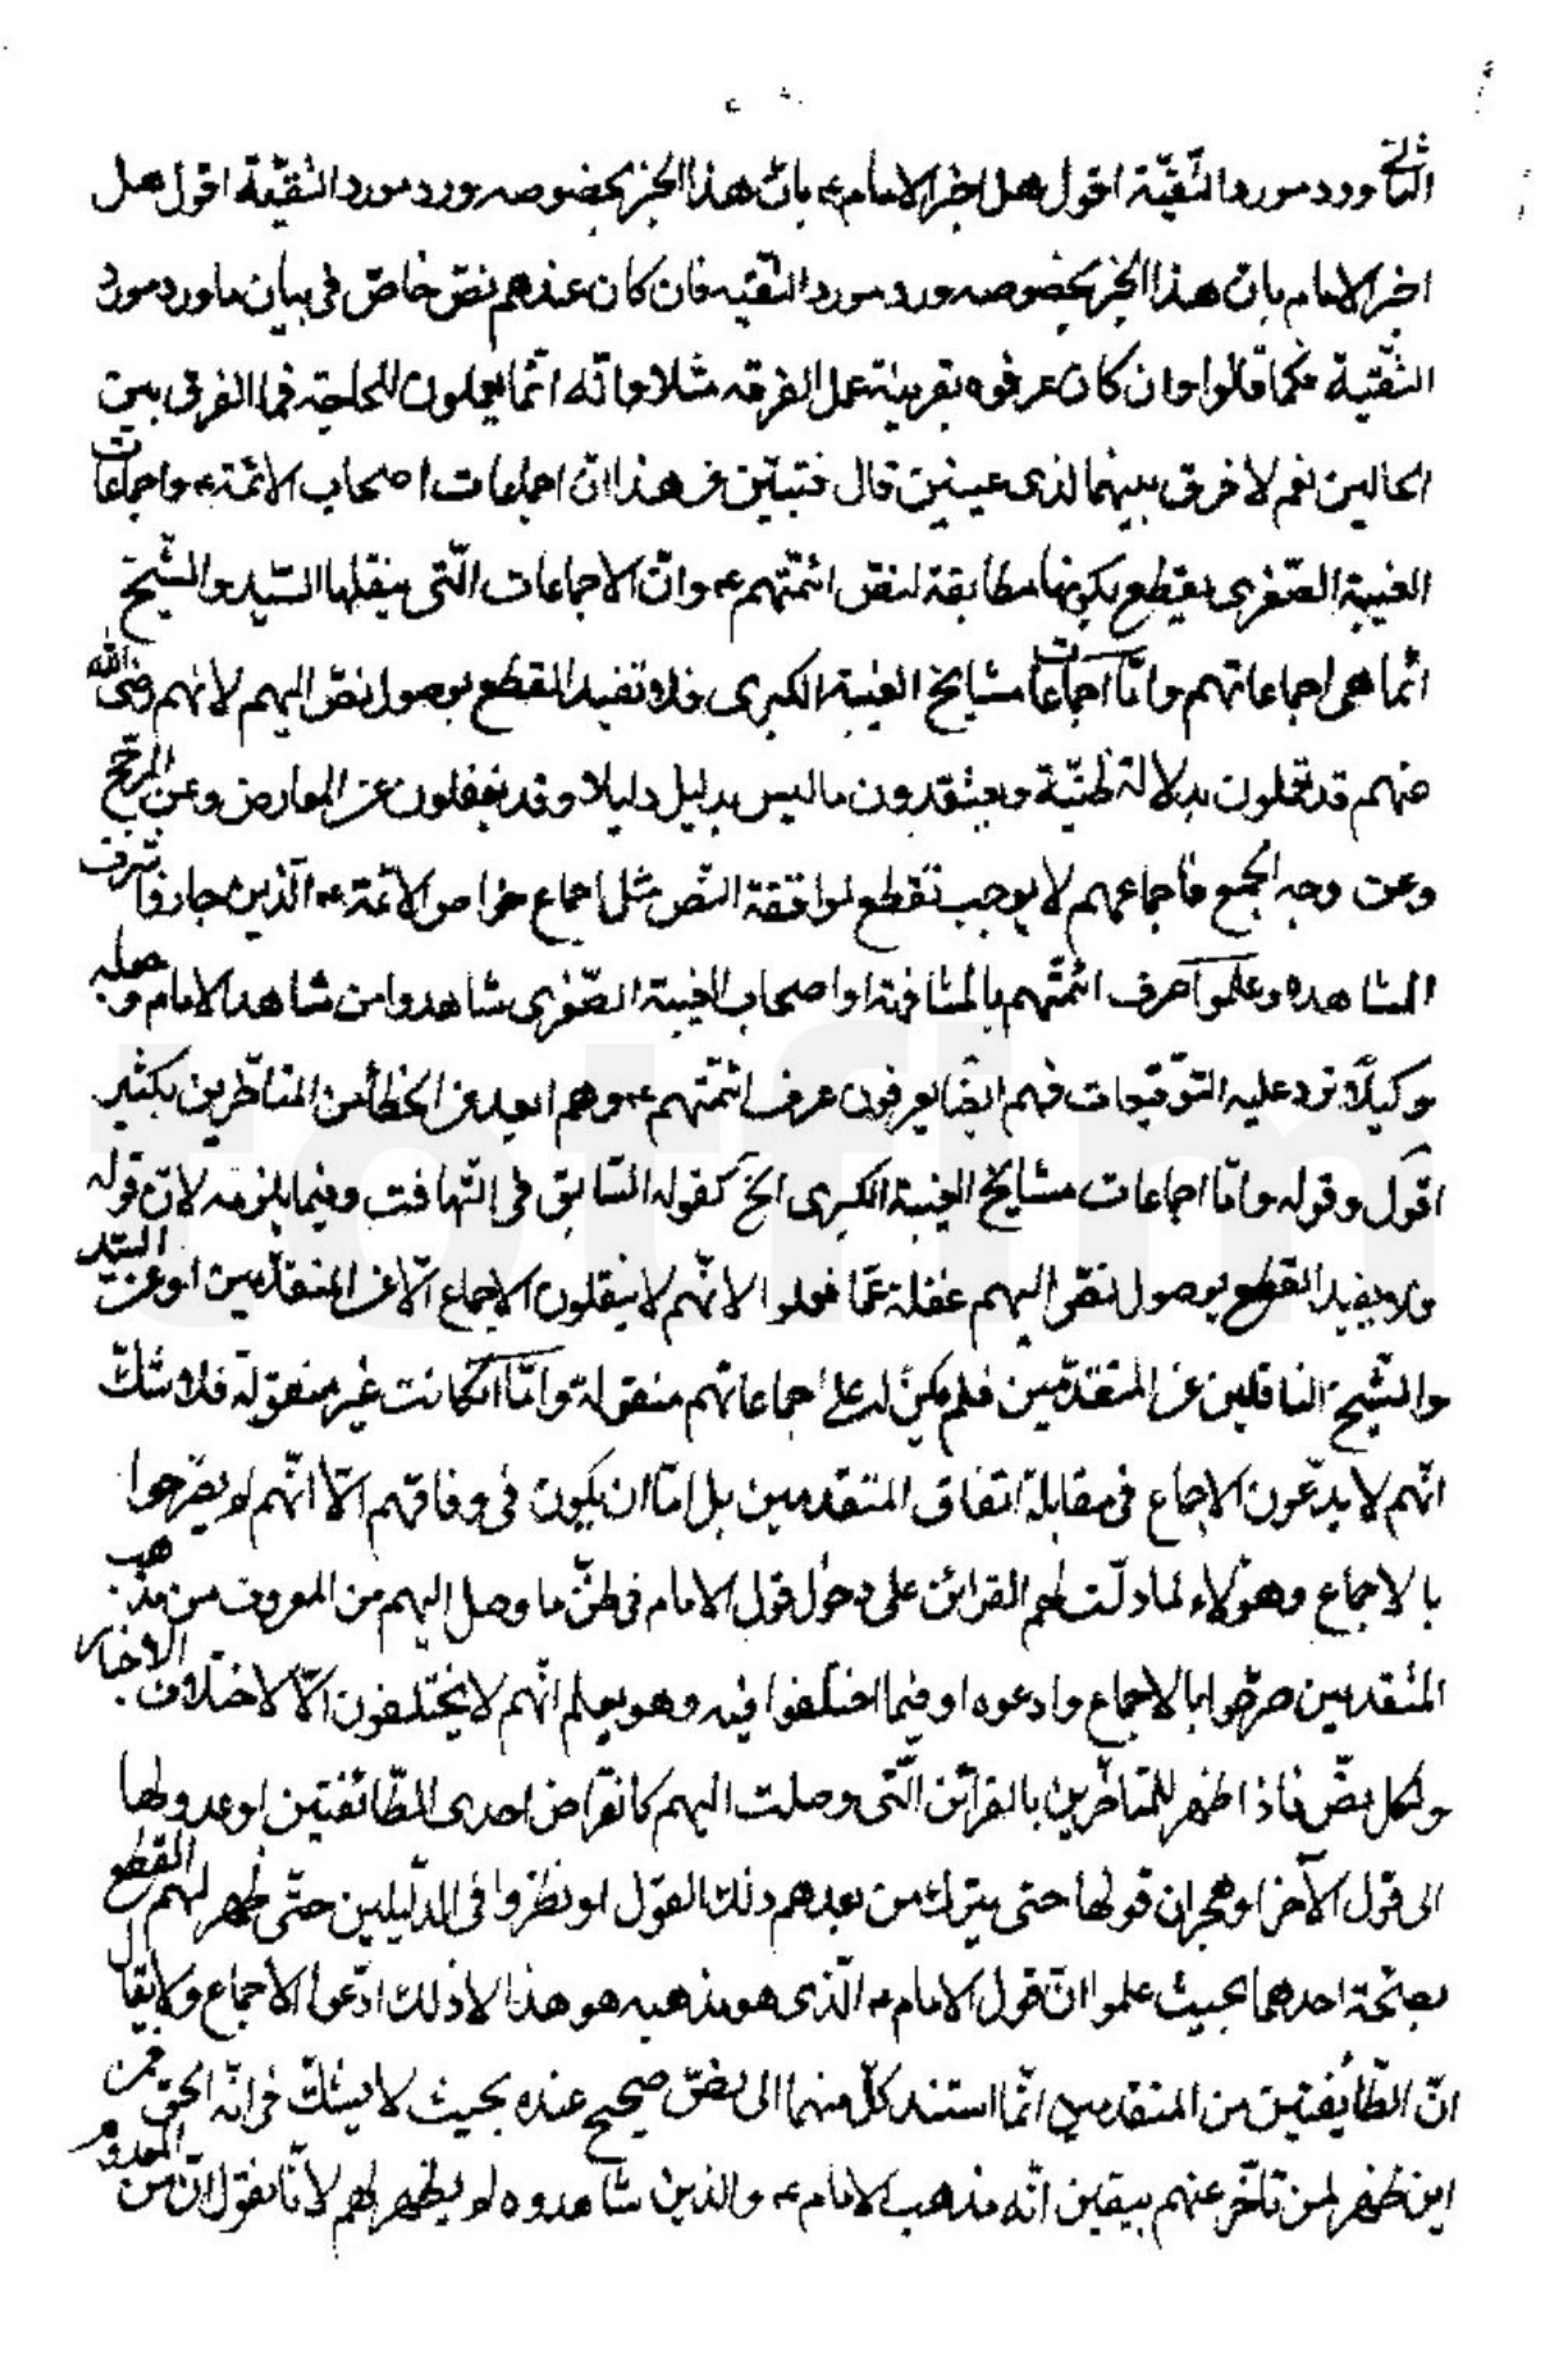 الثالث ورد مورد التقيّة اقول هل اخبر الامام ع بانّ هذا الخبر بخصوصه ورد مورد التقيّة اقول هل
اخبر الامام بان هذا الخبر بخصوصه ورد مورد التقيه فان كان عندهم نصّ خاصّ فى بيان ما ورد مورد
التقّية فكما قالوا وان كان عرفوه بقرينة عمل الفرقه مثلا وانّه انّما يعملون للحاجة فما الفرق بين
الحالين نعم لا فرق بينهما لذى عينين قال فتبيّن من هذا انّ اجماعات اصحاب الائمّة ع واجماعات
الغيبة الصّغرى يقطع بكونها مطابقة لنصّ ائمّتهم ع وانّ الاجماعات الّتى ينقلها السّيد والشّيخ
انّما هى اجماعاتهم وامّا اجماعات مشايخ الغيبة الكبرى فلا تفيد القطع بوصول نصّ اليهم لانهم رضى الله
عنهم قد يحملون بدلالة ظنيّة ويعتقدون ما ليس بدليل دليلا وقد يغفلون عن المعارض وعن المرجّح
وعن وجه الجمع فاجماعهم لا يوجب تقطع لموافقة النّص مثل اجماع خواص الائمّة ع الّذين جازوا شرف
المشاهده وعلموا عرف ائمّتهم بالمشافهة او اصحاب الغيبة الصّغرى شاهدوا من شاهد الامام وجعله
وكيلًا ترد عليه التوّقيعات فهم ايضًا يعرفون عرف ائمّتهم ع وهم ابعد من الخطأ من المتاخّرين بكثير
اقول وقوله وامّا اجماعات مشايخ الغيبة الكبرى الخ كقوله السّابق فى التهافت وفيما يلزمه لان قوله
ولا يفيد القطع بوصول نصّ اليهم غفلة عمّا فعلوا لانّهم لا ينقلون الاجماع الّا عن المتقدّمين او عن السّيد
والشّيخ الناقلين عن المتقدّمين فلم يكن له على اجماعاتهم منقولة وامّا اذا كانت غير منقولة فلا شكّ
انّهم لا يدّعون الاجماع فى مقابلة اتفاق المتقدمين بل امّا ان يكون فى وفاقهم الّا انّهم لم يصّرحوا
بالاجماع وهؤلاء لما دلّت لهم القرائن على دخول قول الامام فى ظنّ ما وصل اليهم من المعروف من مذهب
المتقدمين صرّحوا بالاجماع وادعوه او فيما اختلفوا فيه وهو يعلم انّهم لا يختلفون الّا لاختلاف الاخبار
ولكل نصّ فاذا ظهر للمتاخّرين بالقرائن الّتى وصلت اليهم كانقراض احدى الطّائفتين او عدولها
الى قول الآخر او هجران قولها حتى يترك من بعدهم ذلك القول او نظروا فى الدّليلين حتّى ظهر لهم القطع
بصحّة احدهما بحيث علموا انّ قول الامام ع الّذى هو مذهبه هو هذا لا ذلك ادّعوا الاجماع ولا يقال
انّ الطّايفتين من المتقدمين انّما استند كلّ منهما الى نصّ صحيح عنده بحيث لا يشكّ فى انّه الحق فمن
اين ظهر لمن تأخّر عنهم بيقين انّه مذهب الامام ع والذين شاهدوه لم يظهر لهم لانّا نقول انّ من المعلوم